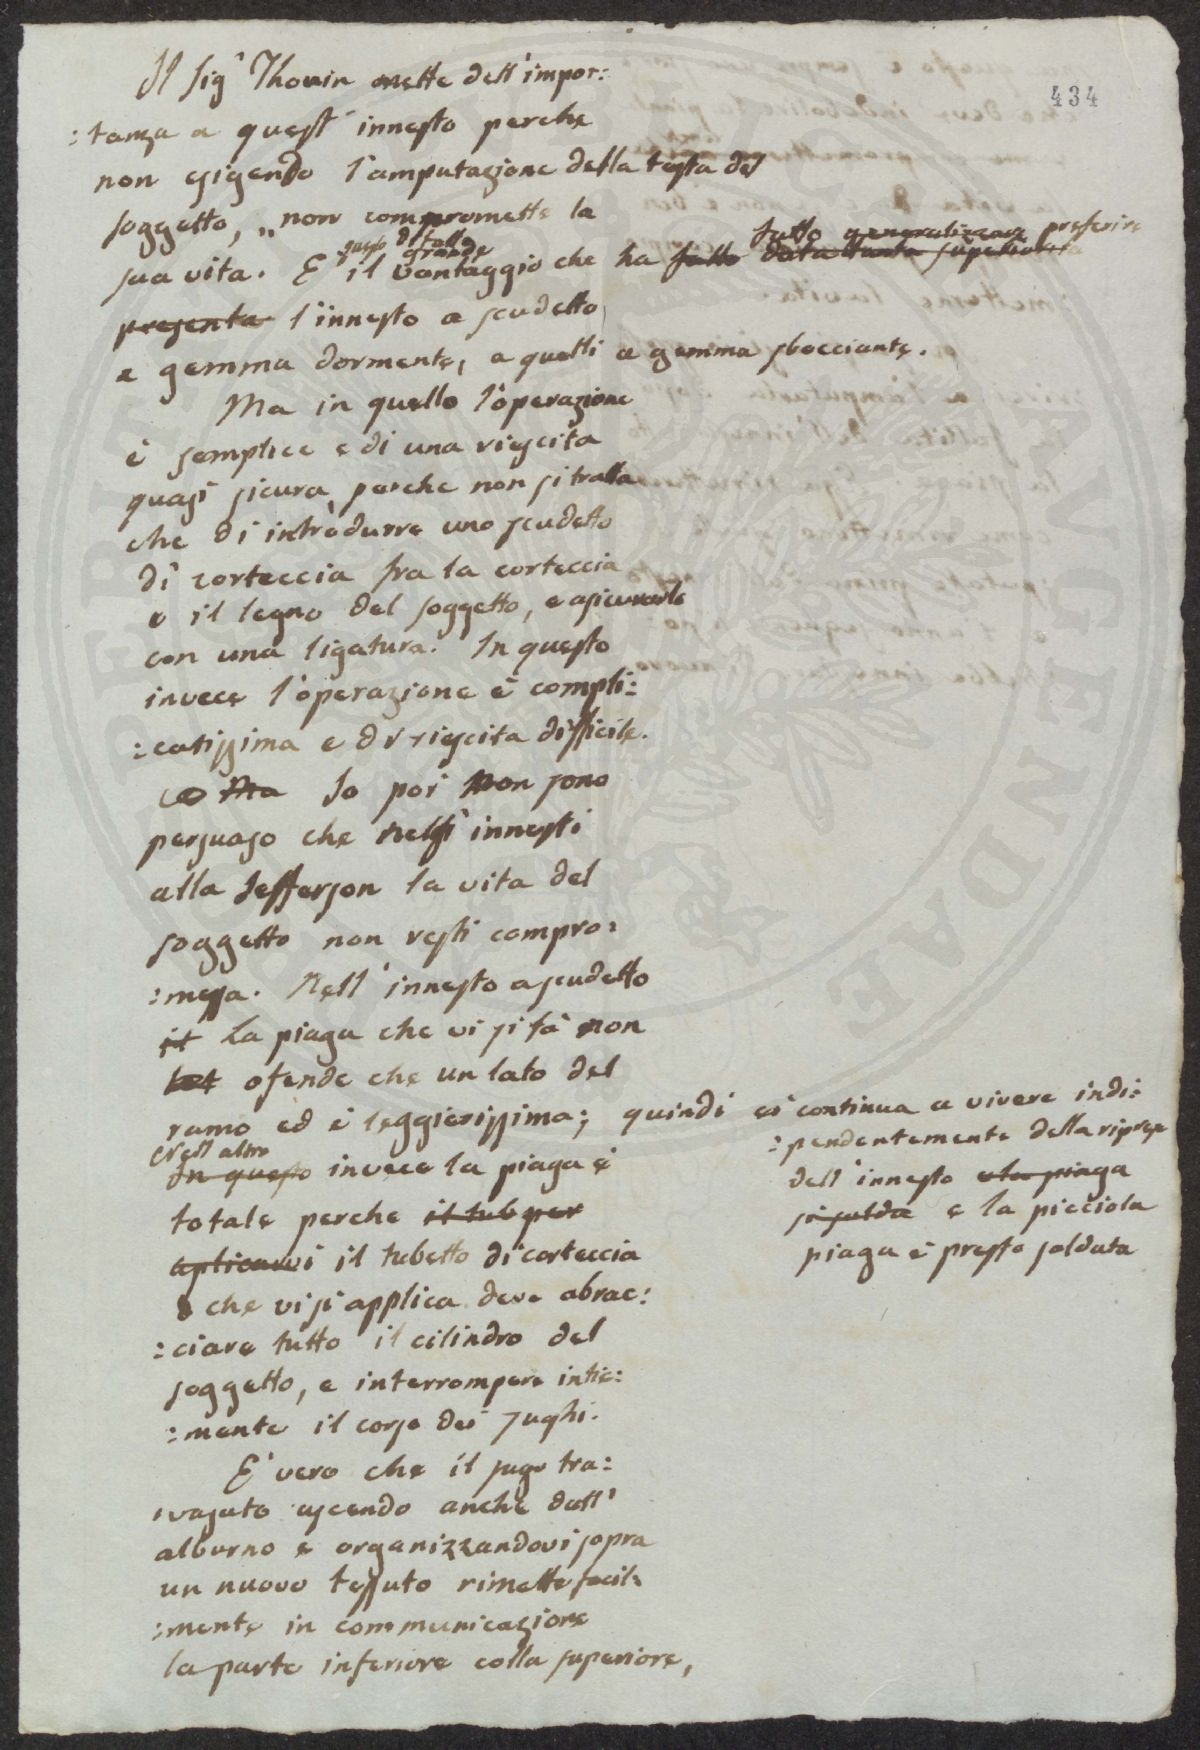 434
Il Sig.r Thouin mette dell'impor:
:tanza a quest'innesto perche
non esigendo l'amputazione della testa del
soggetto, „ non compromette la
sua vita. E questo il grande vantaggio che ha fatto fatto generalizzare preferire
data tanta superiorità
presenta l'innesto a scudetto
a gemma dormente, a quelli a gemma sbocciante.
Ma in quello l'operazione
è semplice e di una riescita
quasi sicura, perche non si tratta
che di introdurre uno scudetto
di corteccia fra la corteccia
e il legno del soggetto, e asicurarlo
con una ligatura. In questo
invece l'operazione è compli:
:catissima e di riescita difficile.
Ma Io poi non sono
persuaso che negl'innesti
alla Jefferson la vita del
soggetto non resti compro:
:messa. Nell'innesto a scudetto
il La piaga che vi si fà non
ofende che un lato del
ramo ed è leggierissima; quindi ei continua a vivere indi:
:pendentemente della ripresa
dell'innesto e la piaga
si salda e la picciola
piaga è presto saldata
Nell'altro
In questo invece la piaga è
totale perche il tub per
aplicarvi il tubetto di corteccia
che vi si applica deve abrac:
:ciare tutto il cilindro del
soggetto, e interrompere intie:
:mente il corso dei sughi.
E' vero che il sugo tra:
:vasato escendo anche dall'
alburno e organizzandovi sopra
un nuovo tessuto rimette facil:
:mente in communicazione
la parte inferiore colla superiore,